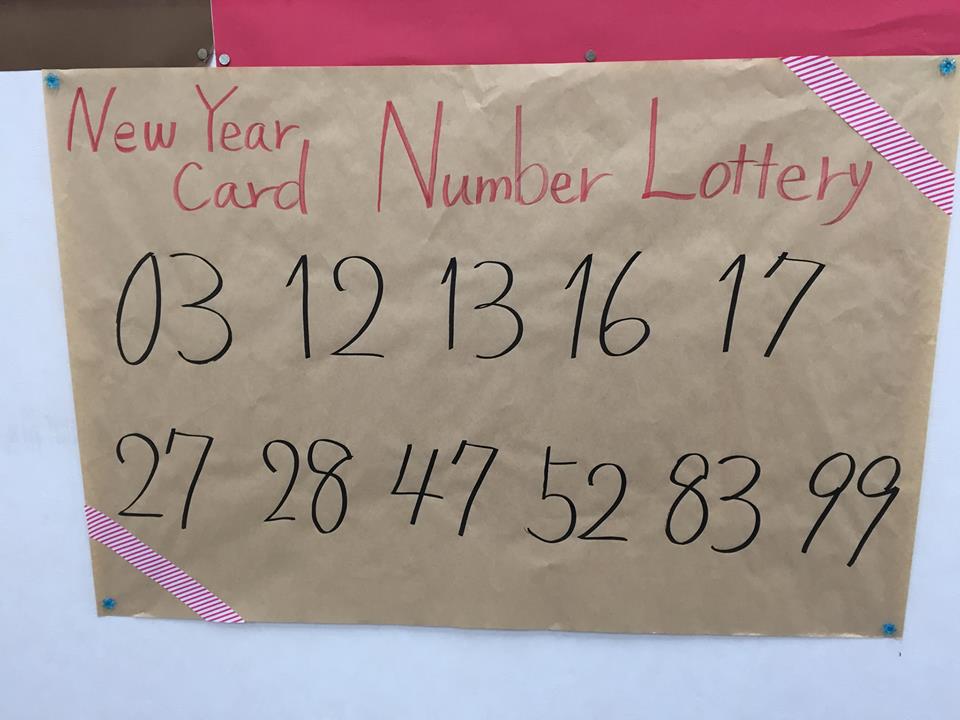 New Year Card Number Lottery
03 12 13 16 17
27 28 47 52 83 99